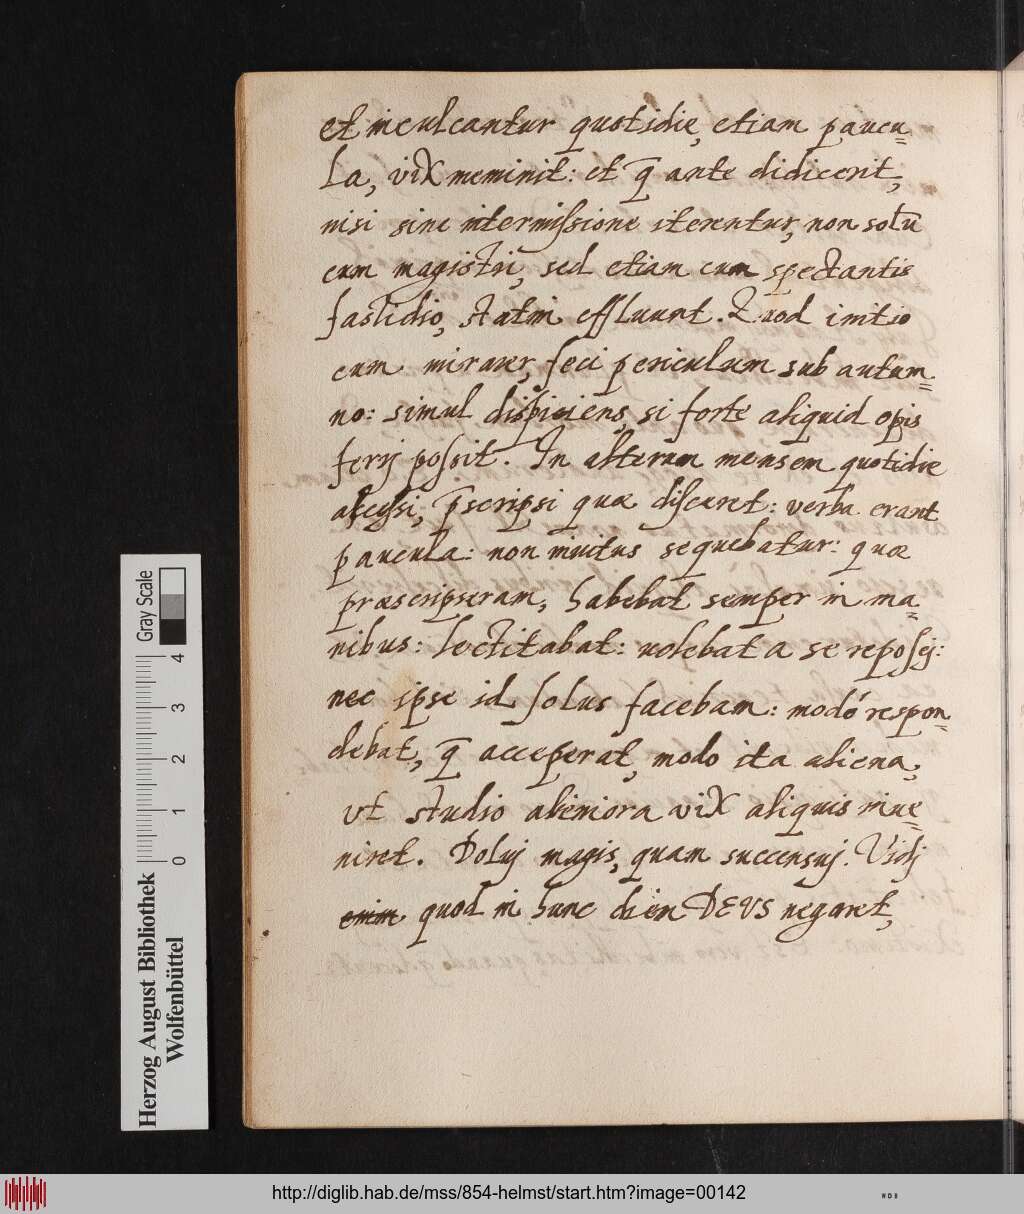 et inculcantur quotidie, etiam paucu=
la, vix meminit: et q̄ ante didicerit,
nisi sine intermissione iterentur, non solū
cum magistri, sed etiam cum spectantis
fastidio, statim effluunt. Quod initio
cum mirarer, feci periculum sub autum=
no: simul dispiciens, si forte aliquid opis
ferrj possit. In alterum mensem quotidie
accessi, p̄scripsi quæ disceret: verba erant
paucula: non invitus sequebatur: quæ
præscripseram, habebat semper in ma=
nibus: lectitabat: volebat a se reposcj:
nec ipse id solus facebam: modò respon=
debat, q̄ acceperat, modo ita aliena,
ut studio alieniora vix aliquis inve=
niret. Doluj magis, quam succensuj. Vidj
enim quod in hunc diem DEUS negaret,
Gray Scale
4
3
2
1
0
Herzog August Bibliothek
Wolfenbüttel
http://diglib.hab.de/mss/854-helmst/start.htm?image=00142